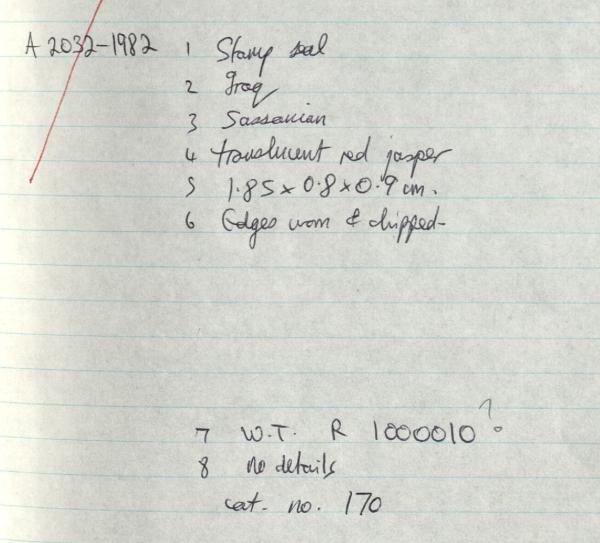 A 2032-1982 1 Stamp seal
2 Iraq
3 Sassanian
4 translucent red jasper
5 1.85 x 0.8 x 0.9 cm.
6 Edges worn & chipped-
7 W.T. R 1000010 ?
8 no details
cat. no. 170